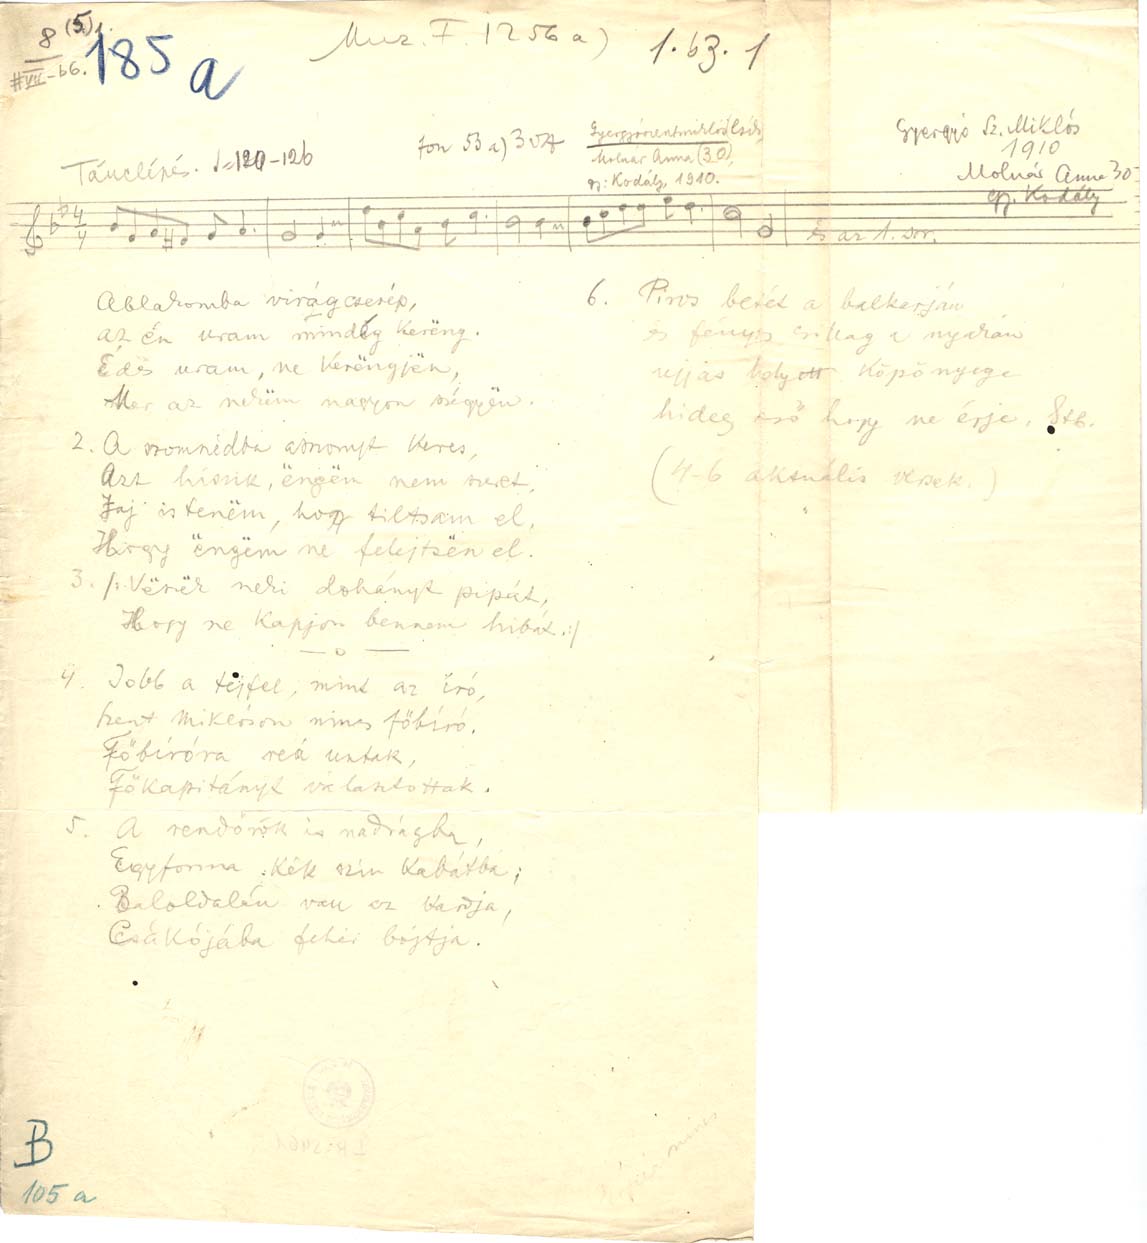 8 (5)1.
#VII-66.
185 a
Muz. F. 1256 a)
1. b3. 1
Tánclépés. ♩=120-126
fon 53 a)
Gyergyószentmiklós
Molnár Anna (30)
gy: Kodály, 1910.
Gyergyó Sz. Miklós
1910
Molnár Anna 30
gy. Kodály
4
4
és az 1. sor.
Ablakomba virágcserép,
az én uram mindég kerëng.
Édës uram, ne kerëngjën,
Mer az nekëm nagyon szégyën.
2. A szomszédba asszonyt keres,
Azt hiszik, ëngëm nem szeret,
Jaj istenëm, hogy tiltsam el,
Hogy ëngëm ne felejtsën el.
3. /: Vëszëk neki dohányt pipát,
Hogy ne kapjon bennem hibát. :/
— o —
4. Jobb a téjfel, mint az író,
Szent Miklóson nincs főbíró.
Főbíróra reá untak,
Főkapitányt választottak.
5. A rendőrök is nadrágba,
Egyforma kék szín kabátba;
Baloldalán van az kardja,
Csákójába fehér bojtja.
6. Piros betét a balkarján
és fényes csillag a nyakán
ujjas bolyott köpönyege
hideg eső hogy ne érje. Stb.
(4-6 aktuális versek.)
B
105 a
nincs